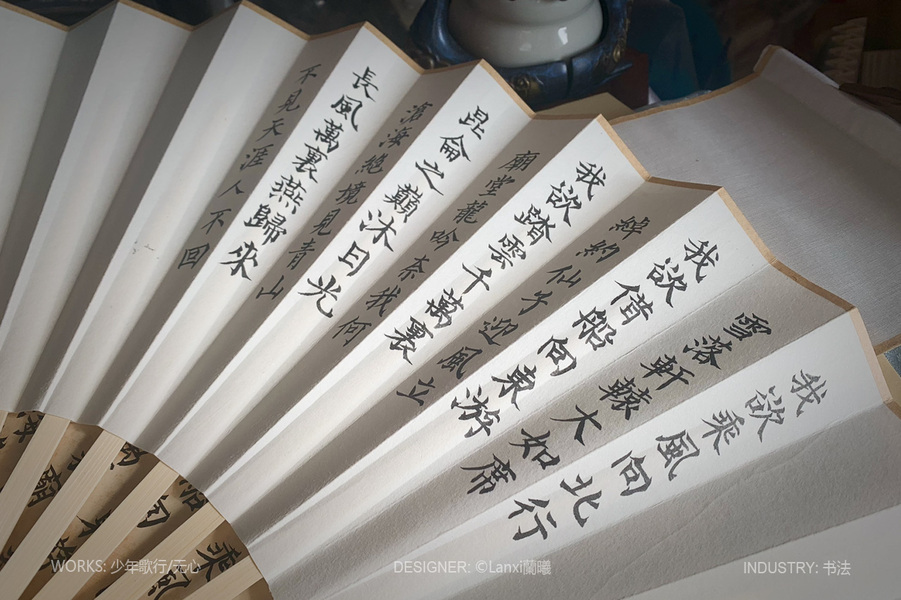 我欲乘風向北行
雪落軒轅大如席
我欲借船向東游
綽約仙子迎風立
我欲踏雲千萬裏
廟堂龍吟奈我何
昆侖之巔沐日光
滄海絕境見青山
長風萬裏燕歸來
不見天涯人不回
乘風
向
WORKS: 少年歌行/无心
DESIGNER: ©Lanxi蘭曦
INDUSTRY: 书法